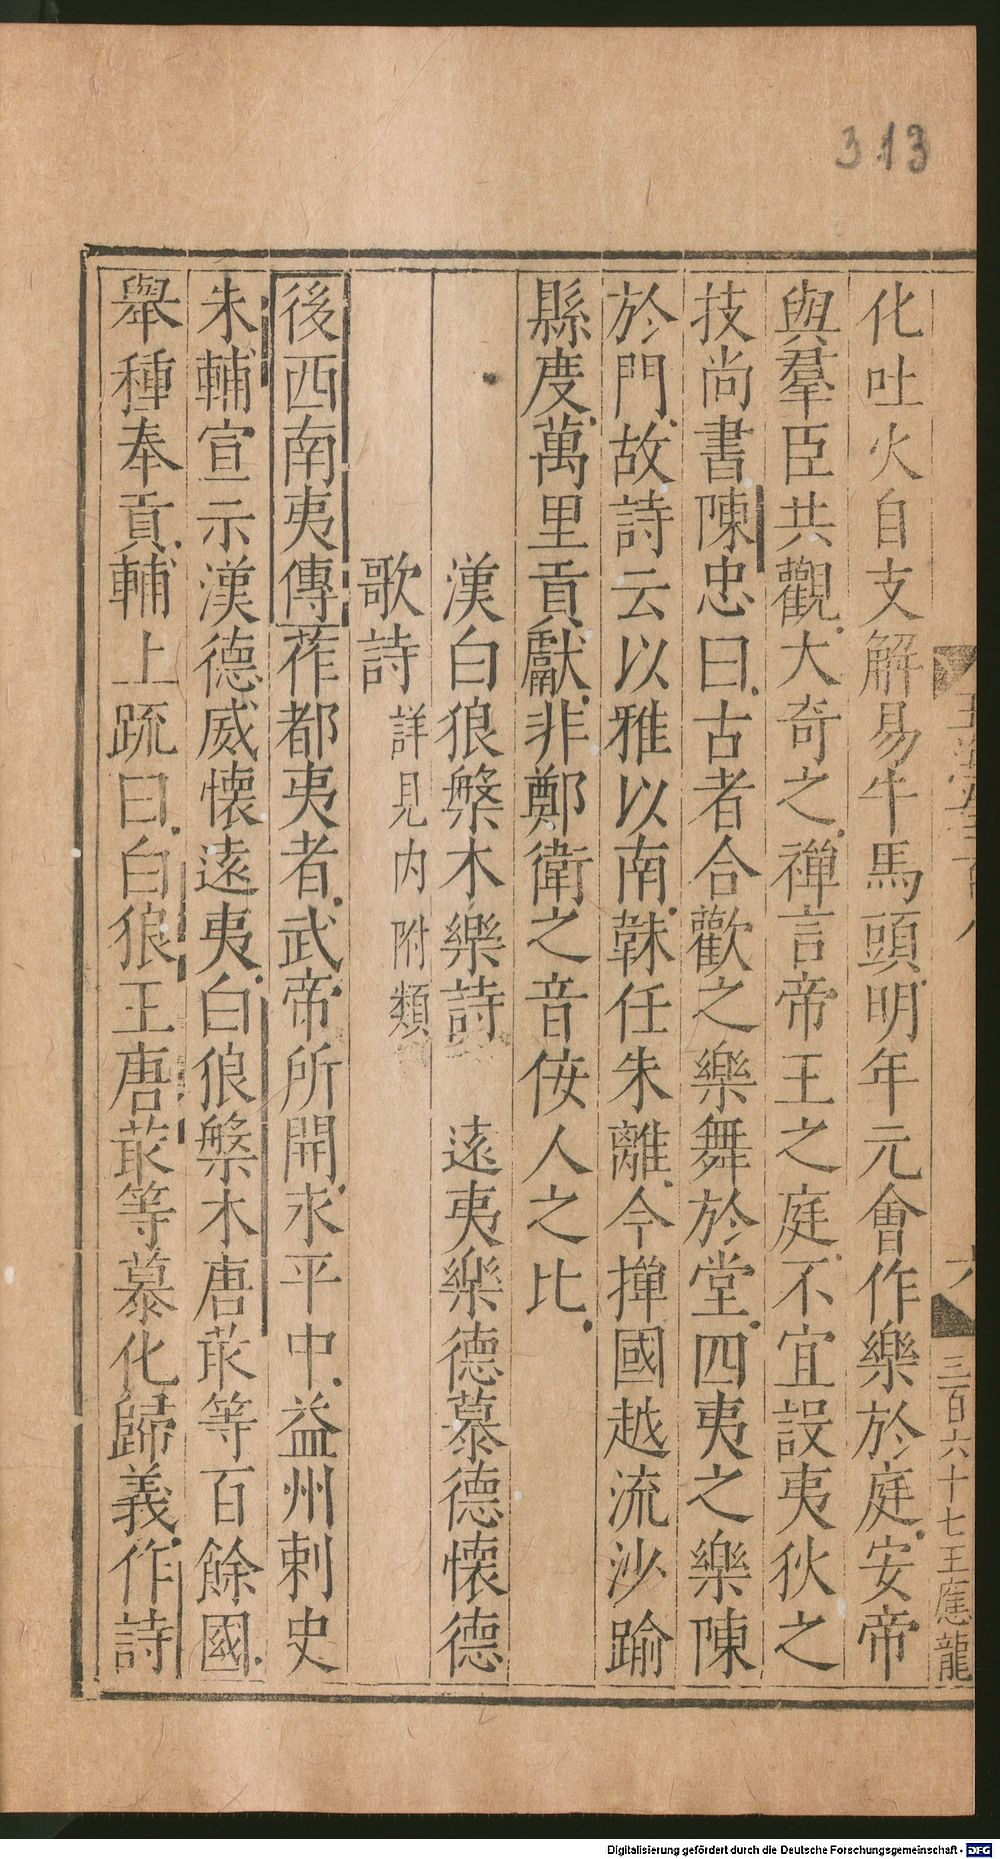 313
三百六十七王應龍
化吐火自支解易牛馬頭明年元會作樂於庭安帝
與羣臣共觀大奇之禪言帝王之庭不宜設夷狄之
技尚書陳忠曰古者合歡之樂舞於堂四夷之樂陳
於門故詩云以雅以南韎任朱離今撣國越流沙踰
縣度萬里貢獻非鄭衛之音佞人之比
漢白狼槃木樂詩　遠夷樂德慕德懷德
歌詩 詳見內附類
後西南夷傳莋都夷者武帝所開永平中益州刺史
朱輔宣示漢德威懷遠夷白狼槃木唐菆等百餘國
舉種奉貢輔上疏曰白狼王唐菆等慕化歸義作詩
Digitalisierung gefördert durch die Deutsche Forschungsgemeinschaft - DFG